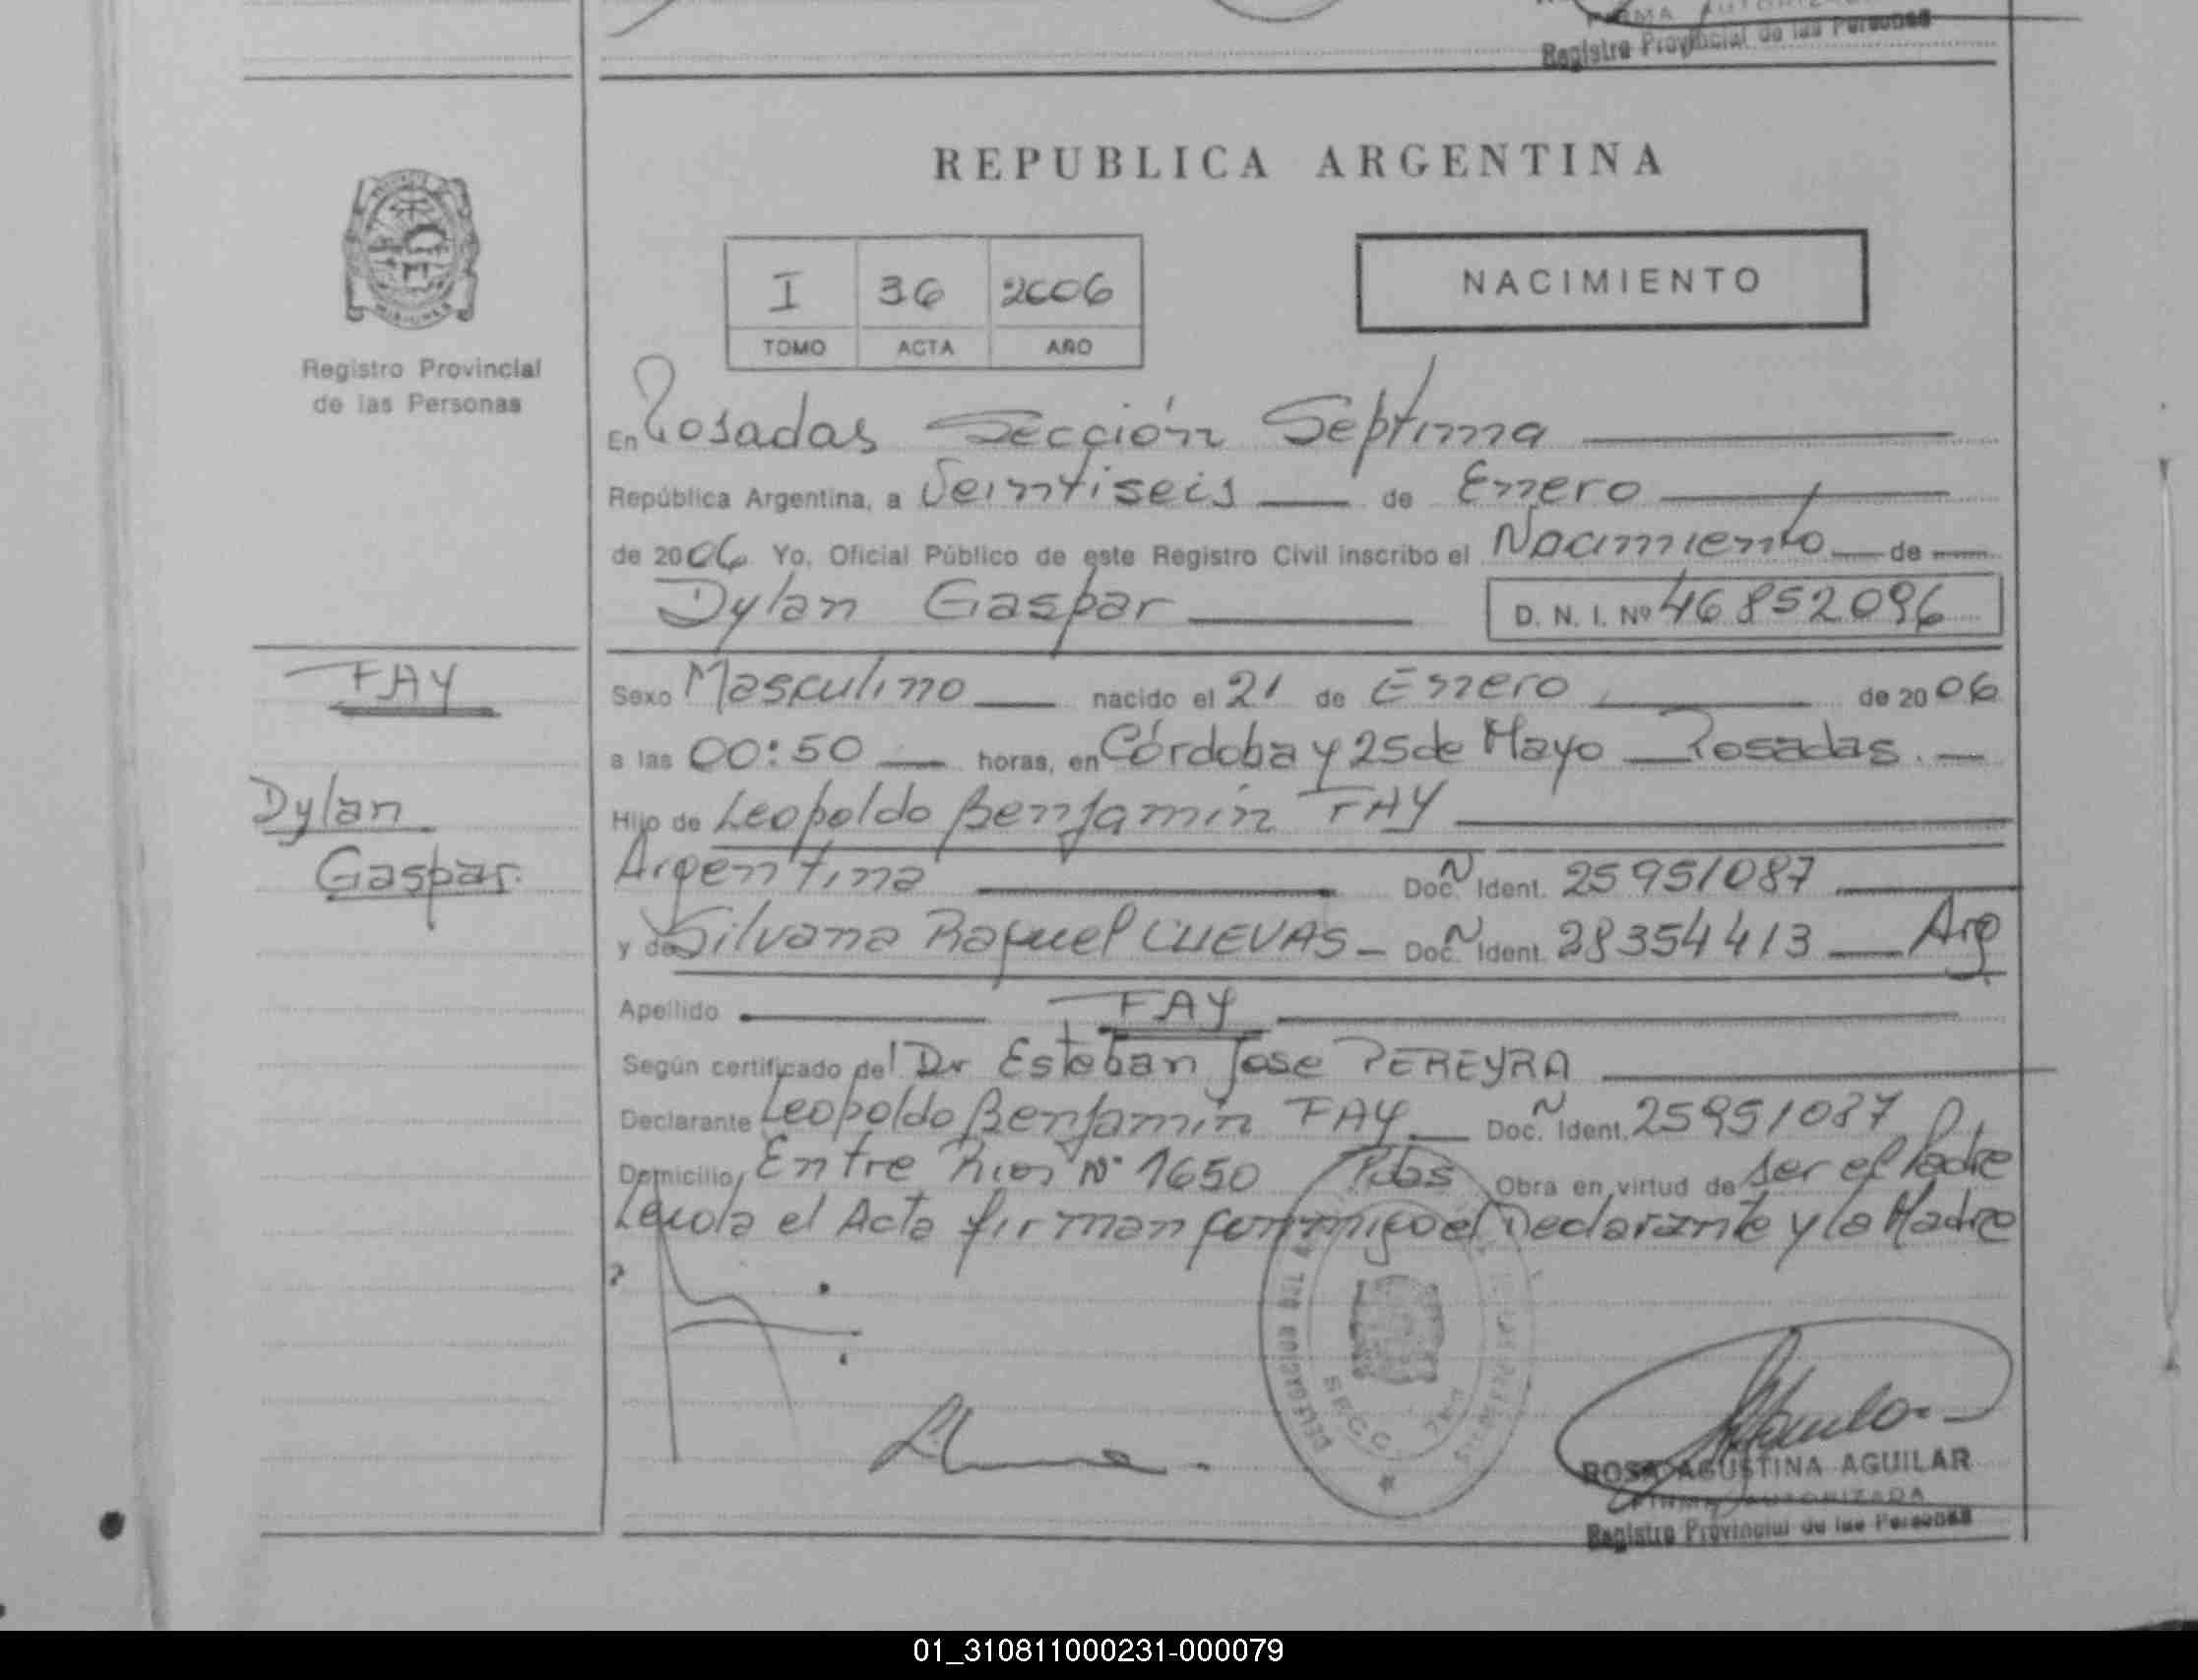 Registro Provincial de las Personas
REPUBLICA ARGENTINA
I 36 2006
TOMO ACTA AÑO
NACIMIENTO
Registro Provincial
de las Personas
En Posadas Sección Septima
República Argentina, a Veintiseis de Enero
de 2006 Yo, Oficial Público de este Registro Civil inscribo el Nacimiento de
Dylan Gaspar D. N. I. Nº 46852096
FAY
Dylan
Gaspar
Sexo Masculino nacido el 21 de Enero de 2006
a las 00:50 horas, en Córdoba y 25 de Mayo Posadas.
Hijo de Leopoldo Benjamín FAY
Argentina Doc. N Ident. 25951087
y de Silvana Raquel CUEVAS - Doc. N Ident. 28354413 Arg
Apellido FAY
Según certificado del Dr Esteban Jose PEREYRA
Declarante Leopoldo Benjamín FAY Doc. N Ident. 25951087
Domicilio Entre Rios Nº 1650 Pdas Obra en virtud de ser el Padre
Leida el Acta firman conmigo el Declarante y la Madre
SECC. 7ma
ROSA AGUSTINA AGUILAR
FIRMA AUTORIZADA
Registro Provincial de las Personas
01_310811000231-000079